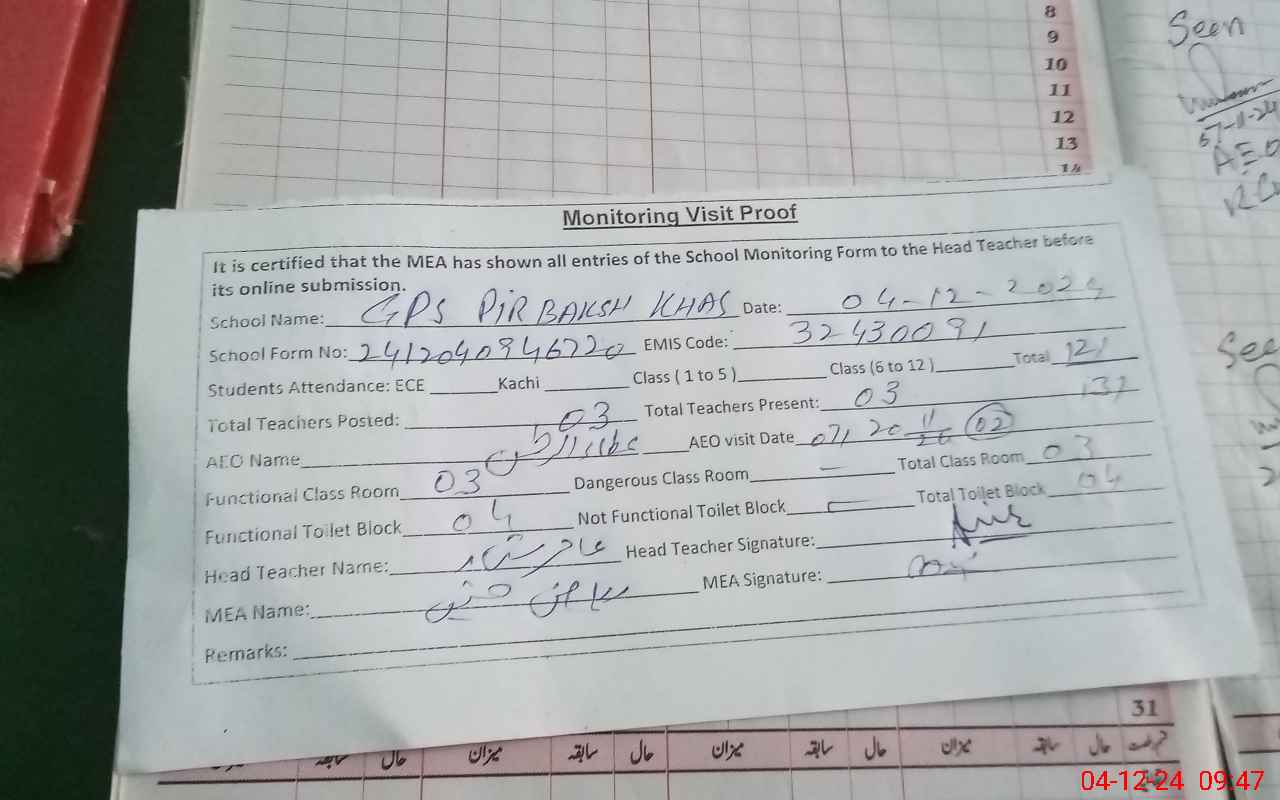 8
9
10
11
12
13
14
Seen
AEO
Monitoring Visit Proof
It is certified that the MEA has shown all entries of the School Monitoring Form to the Head Teacher before
its online submission.
School Name: GPS PIR BAKSH KHAS Date: 04-12-2024
School Form No: 2412040946720 EMIS Code: 32430091
Students Attendance: ECE Kachi Class ( 1 to 5 ) Class (6 to 12 ) Total 121
137
Total Teachers Posted: 03 Total Teachers Present: 03
AEO Name AEO visit Date 07, 20 02
Functional Class Room 03 Dangerous Class Room — Total Class Room 03
Functional Toilet Block 04 Not Functional Toilet Block — Total Toilet Block 04
Head Teacher Name: Head Teacher Signature:
MEA Name: MEA Signature:
Remarks:
31
میزان سابقہ حال میزان سابقہ حال میزان سابقہ حال میزان سابقہ حال
04-12-24 09:47